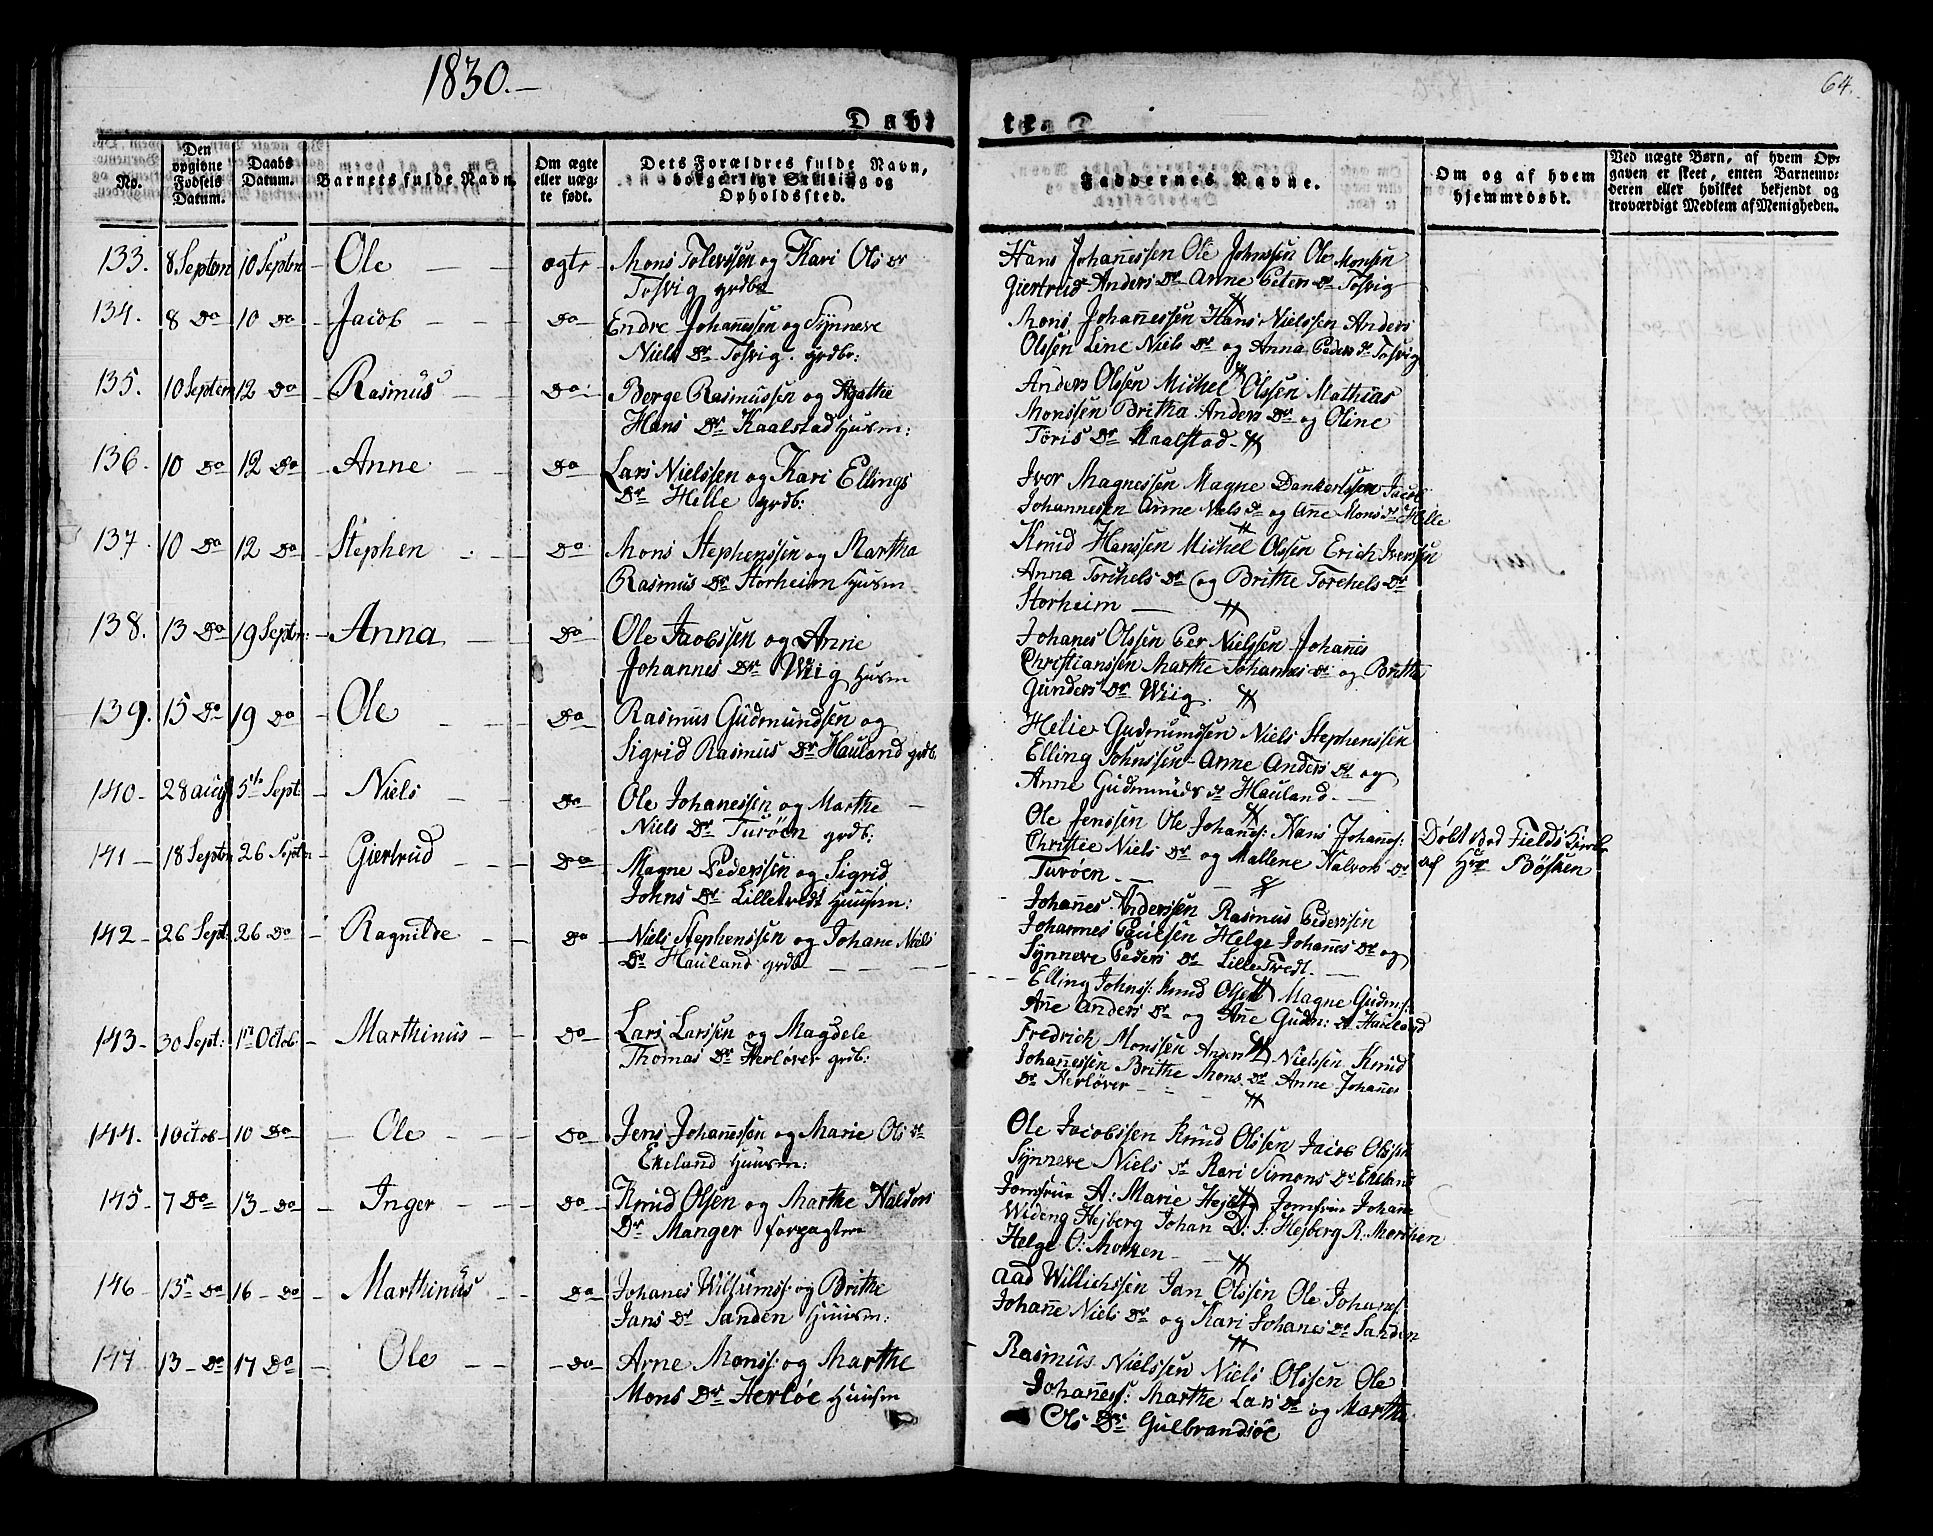 1830.-
64.
Døbte
No.
Den opgivne Fødsels Datum.
Daabs Datum.
Barnets fulde Navn.
Om ægte eller uægte født.
Dets Forældres fulde Navn, borgerlige Stilling og Opholdssted.
Faddernes Navne.
Om og af hvem hjemmedøbt.
Ved uægte Børn, af hvem Opgaven er skeet, enten Barnemoderen eller hvilket bekjendt og troværdigt Medlem af Menigheden.
133. 8 Septbr 10 Septbr Ole ægte Mons Tolevssen og Kari Ols Dr
Tosvig grdbr
Hans Johannessen Ole Johnssen Ole Monsen
Giertrud Anders Dr Anne Peters Dr Tosvig
134. 8 Do 10 Do Jacob Do Endre Johannessen og Synneve
Niels Dr Tosvig. grdbr:
Mons Johannessen Hans Nielssen Anders
Olssen Line Niels Dr og Anna Peders Dr Tosvig
135. 10 Septem 12 Do Rasmus Do Berge Rasmussen og Agathe
Hans Dr Kaalstad Husm:
Anders Olssen Michel Olssen Mathias
Monssen Britha Anders Dr og Oline
Toris Dr Kaalstad
136. 10 Do 12 Do Anne Do Lars Nielssen og Kari Ellings
Dr Helle grdb:
Iver Magnessen Magne Dankertssen Jacob
Johannesen Anne Niels Dr og Ane Mons Dr Helle
137. 10 Do 12 Do Stephen Do Mons Stephenssen og Martha
Rasmus Dr Storheim Husm
Knud Hanssen Michel Olssen Erich Iverssen
Anna Torchels Dr og Brithe Torchels Dr
Storheim
138. 13 Do 19 Septbr: Anna Do Ole Jacobssen og Anne
Johannes Dr Wiig Husm
Johanes Olssen Per Nielssen Johanes
Christianssen Marthe Johannes Dr og Brithe
Gunders Dr Wiig
139. 15 Do 19 Do Ole Do Rasmus Gudmundsen og
Sigrid Rasmus Dr Hauland grdb.
Helie Gudmundssen Niels Stephenssen
Elling Johnssen Anne Anders Dr og
Anne Gudmunds Dr Hauland
140 - 28 aug 5te Sept Niels Do Ole Johanessen og Marthe
Niels Dr Turøen grdb:
Ole Jenssen Ole Johannes: Hans Johannes:
Christie Niels Dr og Mallene Halvors Dr
Turøen
Døbt ved Fields Kirke
af Hr Bøsken
141 - 18 Septbr 26 Septbr Giertrud Do Magne Pederssen og Sigrid
Johns Dr Lilletvedt Huusm:
Johannes Anderssen Rasmus Pederssen
Johannes Paulsen Helge Johannes Dr og
Synneve Peders Dr Lille Tvedt
142 - 26 Sept: 26 Do Ragnilde Do Niels Stephenssen og Johane Niels
Dr Hauland grdb
Elling Johnss: Knud Olssen Magne Gudm:
Ane Anders Dr og Ane Gudm: Dr Hauland
143 - 30 Sept: 1ste Octob: Marthinus Do Lars Larssen og Magdele
Thomas Dr Herløver grdb:
Fredrich Monssen Anders Nielssen Knud
Johannessen Brithe Mons Dr Anne Johanes
Dr Herløver
144. 1 Octob 10 Do Ole Do Jens Johannessen og Marie Ols Dr
Ekeland Huusm:
Ole Jacobssen Knud Olssen Jacob Olssen
Synneve Niels Dr Kari Simons Dr Ekeland
145 - 7 Do 13 - Do Inger Do Knud Olssen og Marthe Haldors
Dr Manger forpagter
Jomfrue A: Marie Hejberg Jomfrue Johane
Wideng Hejberg Johan D: S. Hejberg R: Mortssen
Helge O: Morken
146 - 13 Do 16 - Do Marthinus Do Johanes Willumss: og Brithe
Jans Dr Sanden Huusm:
Aad Willichssen Jan Olssen Ole Johanes:
Johanne Niels Dr og Kari Johanes Dr Sanden
147 13 - Do 17 Do Ole - Do Arne Monss: og Marthe
Mons Dr Herløe Huusm
Rasmus Nielssen Niels Olssen Ole
Johannes: Marthe Lars Dr og Marthe
Ols Dr Gulbrandsøe